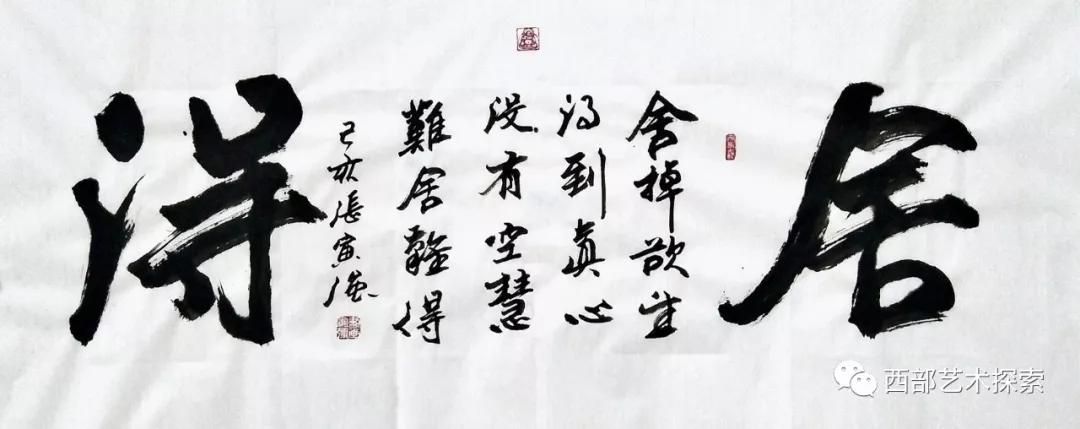 舍
舍掉欲望
得到真心
没有空慧
難舍難得
己亥張寅强
得
西部艺术探索